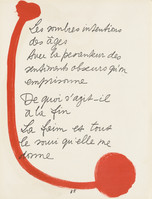 Les sombres intentions
des âges
Avec la pesanteur des
sentiments obscurs qu'on
emprisonne
De quoi s'agit-il
à la fin
La faim est tous
le mui qu'elle me
donne